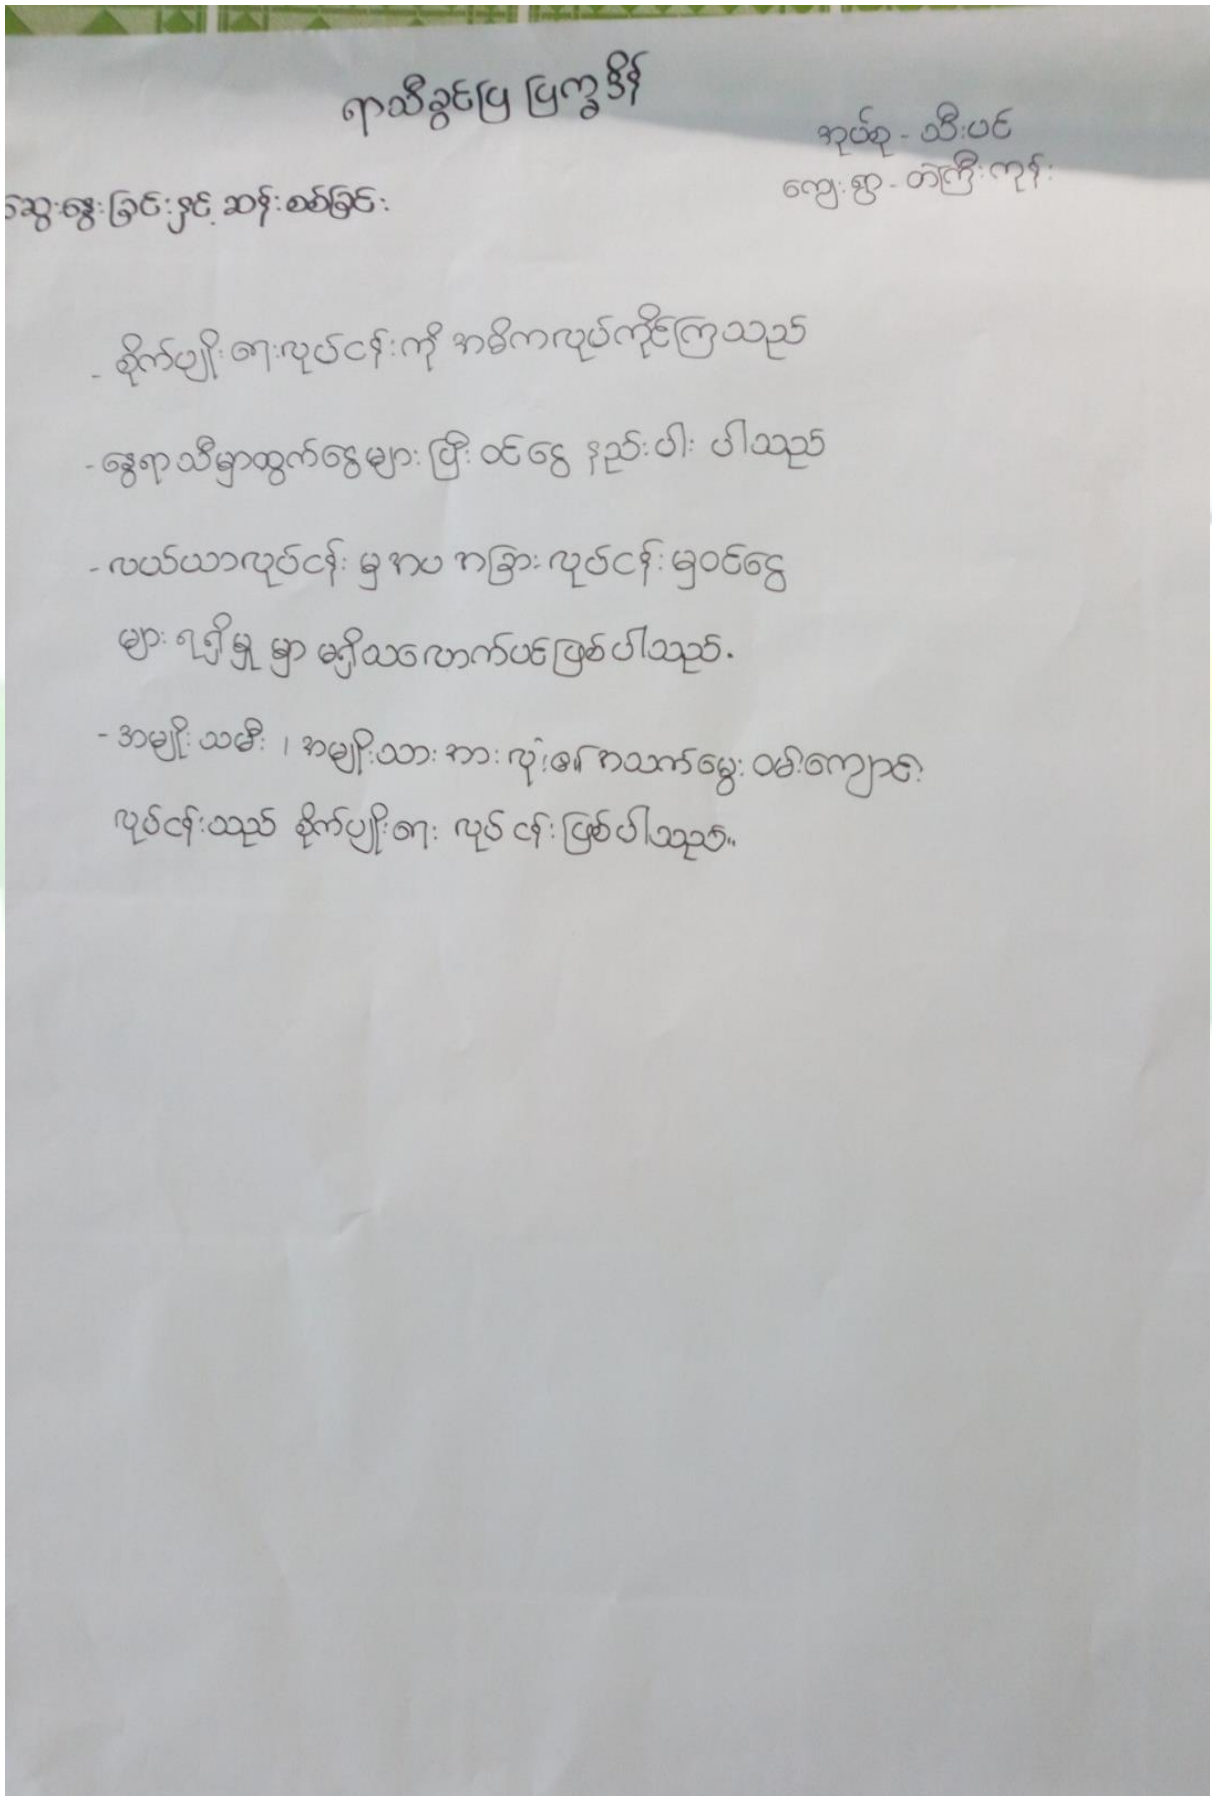 ရာသီခွင်ပြ ပြက္ခဒိန်
အုပ်စု - သီးပင်
ကျေးရွာ - တဲကြီးကုန်း
ဆွေးနွေးခြင်းနှင့် ဆန်းစစ်ခြင်း
- စိုက်ပျိုးရေးလုပ်ငန်းကို အဓိကလုပ်ကိုင်ကြသည်
- နွေရာသီမှာထွက်ငွေများပြီး ဝင်ငွေ နည်းပါး ပါသည်
- လယ်ယာလုပ်ငန်း မှ အပ အခြားလုပ်ငန်း မှဝင်ငွေ
များ ရရှိမှု မှာ မရှိသလောက်ပင်ဖြစ်ပါသည်.
- အမျိုးသမီး ၊ အမျိုးသားအားလုံး၏ အသက်မွေး ဝမ်းကျောင်း
လုပ်ငန်းသည် စိုက်ပျိုးရေး လုပ်ငန်းဖြစ်ပါသည်။